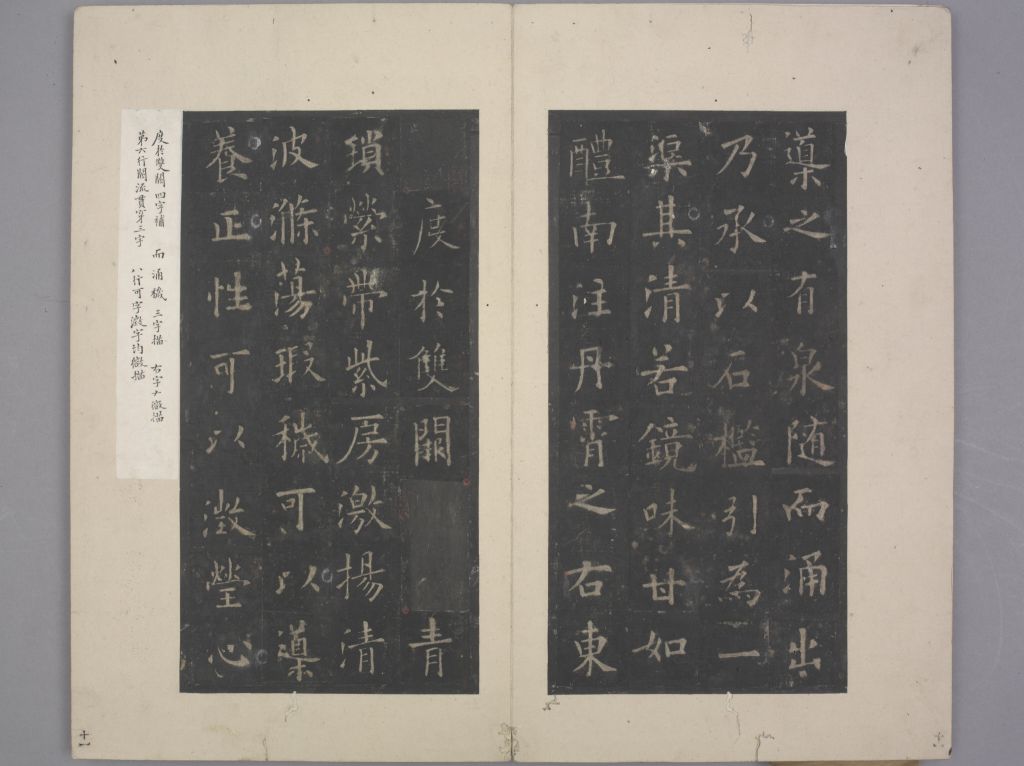 導之有泉随而涌出
乃承以石檻引為一
渠其清若鏡味甘如
醴南注丹霄之右東
度於雙闕青
瑣縈帶紫房激揚清
波滌蕩瑕穢可以導
養正性可以澂瑩心
度於雙闕四字補 而涌穢三字描 右字ナ微描
第六行闕流貫穿三字 八行可字澂字均微描
十一